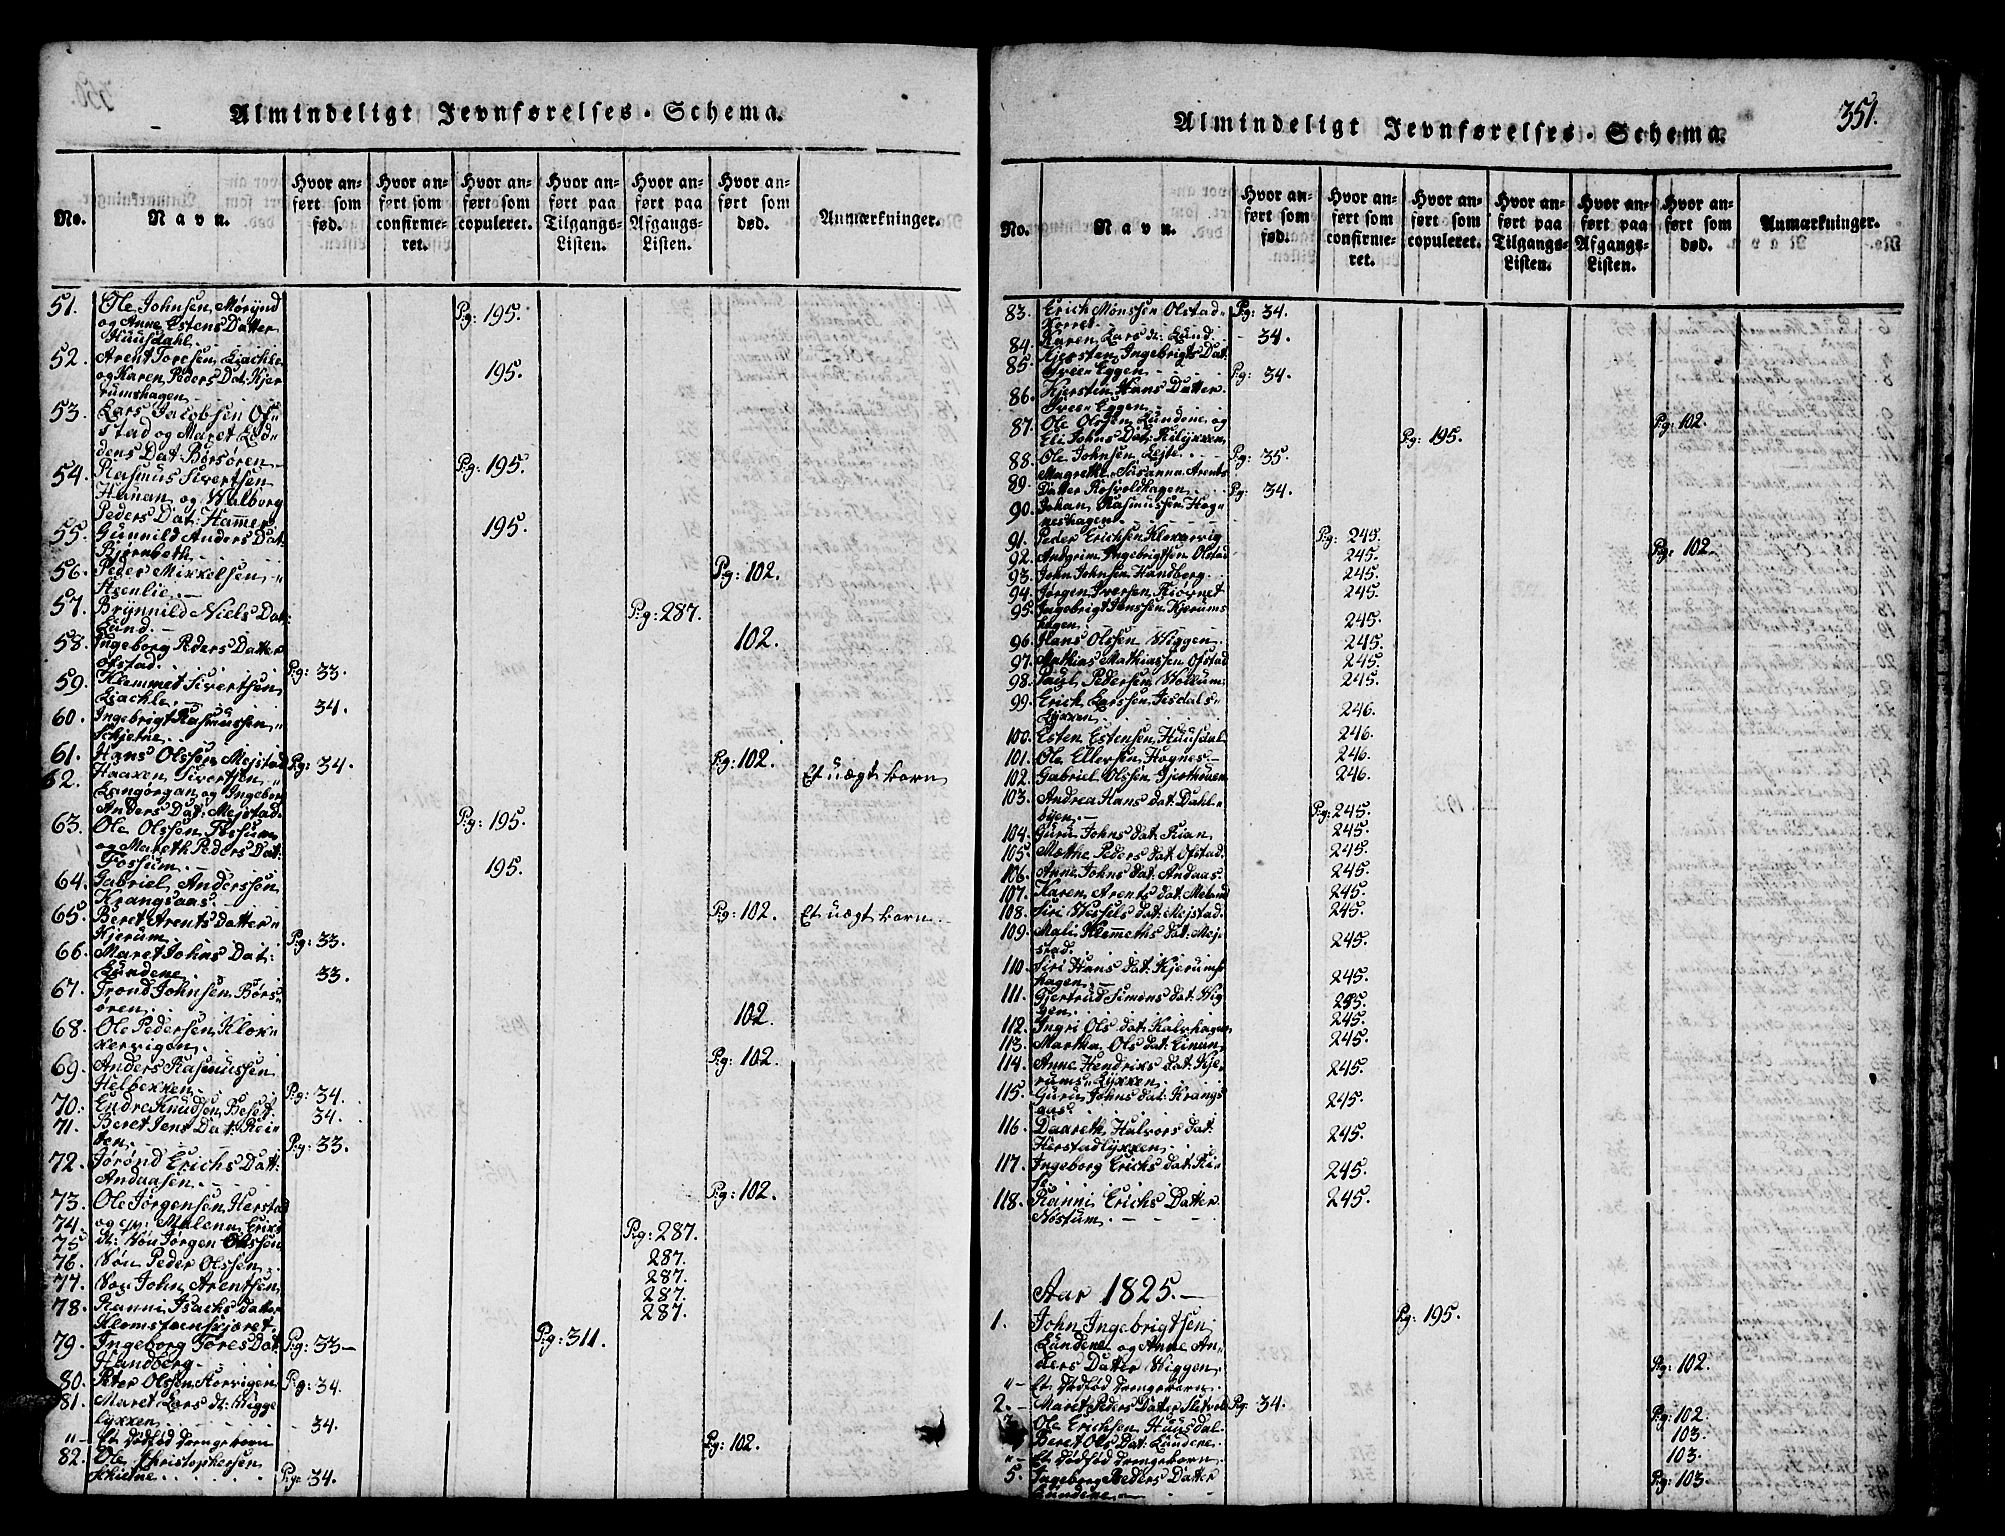 Almindeligt Jevnførelses-Schema.
No.
Navn.
Hvor anført som fød.
Hvor anført som confirmeret.
Hvor anført som copuleret.
Hvor anført paa Tilgangs-Listen.
Hvor anført paa Afgangs-Listen.
Hvor anført som død.
Anmærkninger.
51. Ole Johnsen Mørynd
og Anne Estens Datter
Huusdahl. Pg: 195.
52. Arent Toresen Liachle
og Karen Peders Dat: Kjer
rumshagen 195.
53. Lars Jacobsen Of-
stad og Maret Lod-
dens Dat: Børsøren Pg: 195.
54. Rasmus Sivertsen
Hanan og Walborg
Peders Dat: Hammer 195.
55. Gunnild Anders Dat:
Bjørnbeth Pg: 102.
56. Peder Mikkelsen
Asenlie. Pg: 287.
57. Brynnild Niels Dat:
Lund. 102.
58. Ingeborg Peders Datter
Ofstad. Pg: 33.
59. Klemmet Sivertsen
Liachle. 34.
60. Ingebrigt Rasmussen
Schjetne. Pg: 102.
61. Hans Olssen Mejstad Pg: 34. Et uægt barn
62. Haaken Sivertsen
Langørgan og Ingeborg
Anders Dat: Mejstad. Pg: 195.
63. Ole Olssen Fossum
og Mareth Peders Dat:
Fossum. 195.
64. Gabriel Anderssen
Krangsaas. Pg: 102. Et uægt barn
65. Beret Arents Datter
Kjerum. Pg: 33.
66. Maret Johns Dat:
Lundene. 33.
67. Trond Johnsen Børs-
øren. 102.
68. Ole Pedersen Klok-
kervigen. Pg: 102.
69. Anders Rasmussen
Helbekken. Pg: 34.
70. Endre Knudsen Beset 34.
71. Beret Jens Dat: Rei-
ten. Pg: 33.
72. Jørønd Erichs Dat:
Andaasen. Pg: 102.
73. Ole Jørgensen Herstad
74. og Malena Erics Pg: 287.
75. d: Søn Jørgen Olssen 287.
76. Søn Peder Olssen 287.
77. Søn John Arentsen 287.
78. Ranni Isachs Datter 287.
Klomstoenskjæret Pg: 311.
79. Ingeborg Tores Dat: Pg: 33
Handberg.
80. Peter Olssen Korvigen Pg: 34.
81. Maret Lars d: Wigge
lykken 34.
" Et dødfød Drengebarn Pg: 102.
82. Ole Christophersen
Schietne Pg: 34.
351.
Almindeligt Jevnførelses-Schema.
No.
Navn.
Hvor anført som fød.
Hvor anført som confirmeret.
Hvor anført som copuleret.
Hvor anført paa Tilgangs-Listen.
Hvor anført paa Afgangs-Listen.
Hvor anført som død.
Anmærkninger.
83. Erich Monssen Olstad Pg: 34.
84. Karen Lars d: Lund. 34.
85. Kjersten Ingebrigts Dat:
Eggen Pg: 34.
86. Kjersten Hans Datter
Eggen Pg: 102.
87. Ole Olssen Lundene og
Eli Johns Dat: Pg: 195.
88. Ole Johnsen Lejte Pg: 35.
89. Magrethe Susanna Arents
Datter Rosvoldhagen Pg: 34.
90. Johan Rasmussen Hog-
neshagen Pg: 102.
91. Peder Erichsen Klokervig Pg: 245.
92. Andgrim Ingebrigtsen Olstad 245.
93. John Johnsen Handberg 245.
94. Jørgen Iversen 245.
95. Ingebrigt Jonssen Kjerums
hagen 245.
96. Hans Olssen Wiggen 245.
97. Mathias Mathiassen Ofstad 245.
98. Paul Pedersen Wollum 245.
99. Erick Larssen
Lykken 246.
100. Esten Estensen Huusdal 246.
101. Ole Ellefsen Hognes 246.
102. Gabriel Olssen 246.
103. Andrea Hans dat: Dahl-
øyen. Pg: 245.
104. Guru Johns dat: Rian 245.
105. Mæthe Peders dat: Ofstad. 245.
106. Anne Johns dat: Andaas. 245.
107. Karen Arents dat: 245.
108. Siri Wessels dat: Mejstad. 245.
109. Mali Klemeths dat: Mej
stad. 245.
110. Siri Hans dat: Kjerums
hagen. 245.
111. Gjertrud Simons dat: Wig
gen. 245.
112. Ingri Ols dat: Kalvhagen 245.
113. Martha Ols dat: 245.
114. Anne Hendriks dat: Kje
rums Lykken 245.
115. Guru Johns dat: Krangs
aas 245.
116. Daareth Halvors dat:
Herstadlykken 245.
117. Ingeborg Erichs dat: 245.
118. Ranni Erichs Datter
Nøstum 245.
Aar 1825.
1. John Ingebrigtsen Pg: 195.
Lundene og Anne An-
ders Datter Wiggen.
" Et dødfød Drengebarn Pg: 102.
2. Maret Peders Datter Pg: 34.
3. Ole Erichsen Huusdal Pg: 102
Beret Ols Dat: Lundene 103.
" Et dødfød Drengebarn 103.
5. Ingeborg Peders Datter Pg: 103.
Lundene